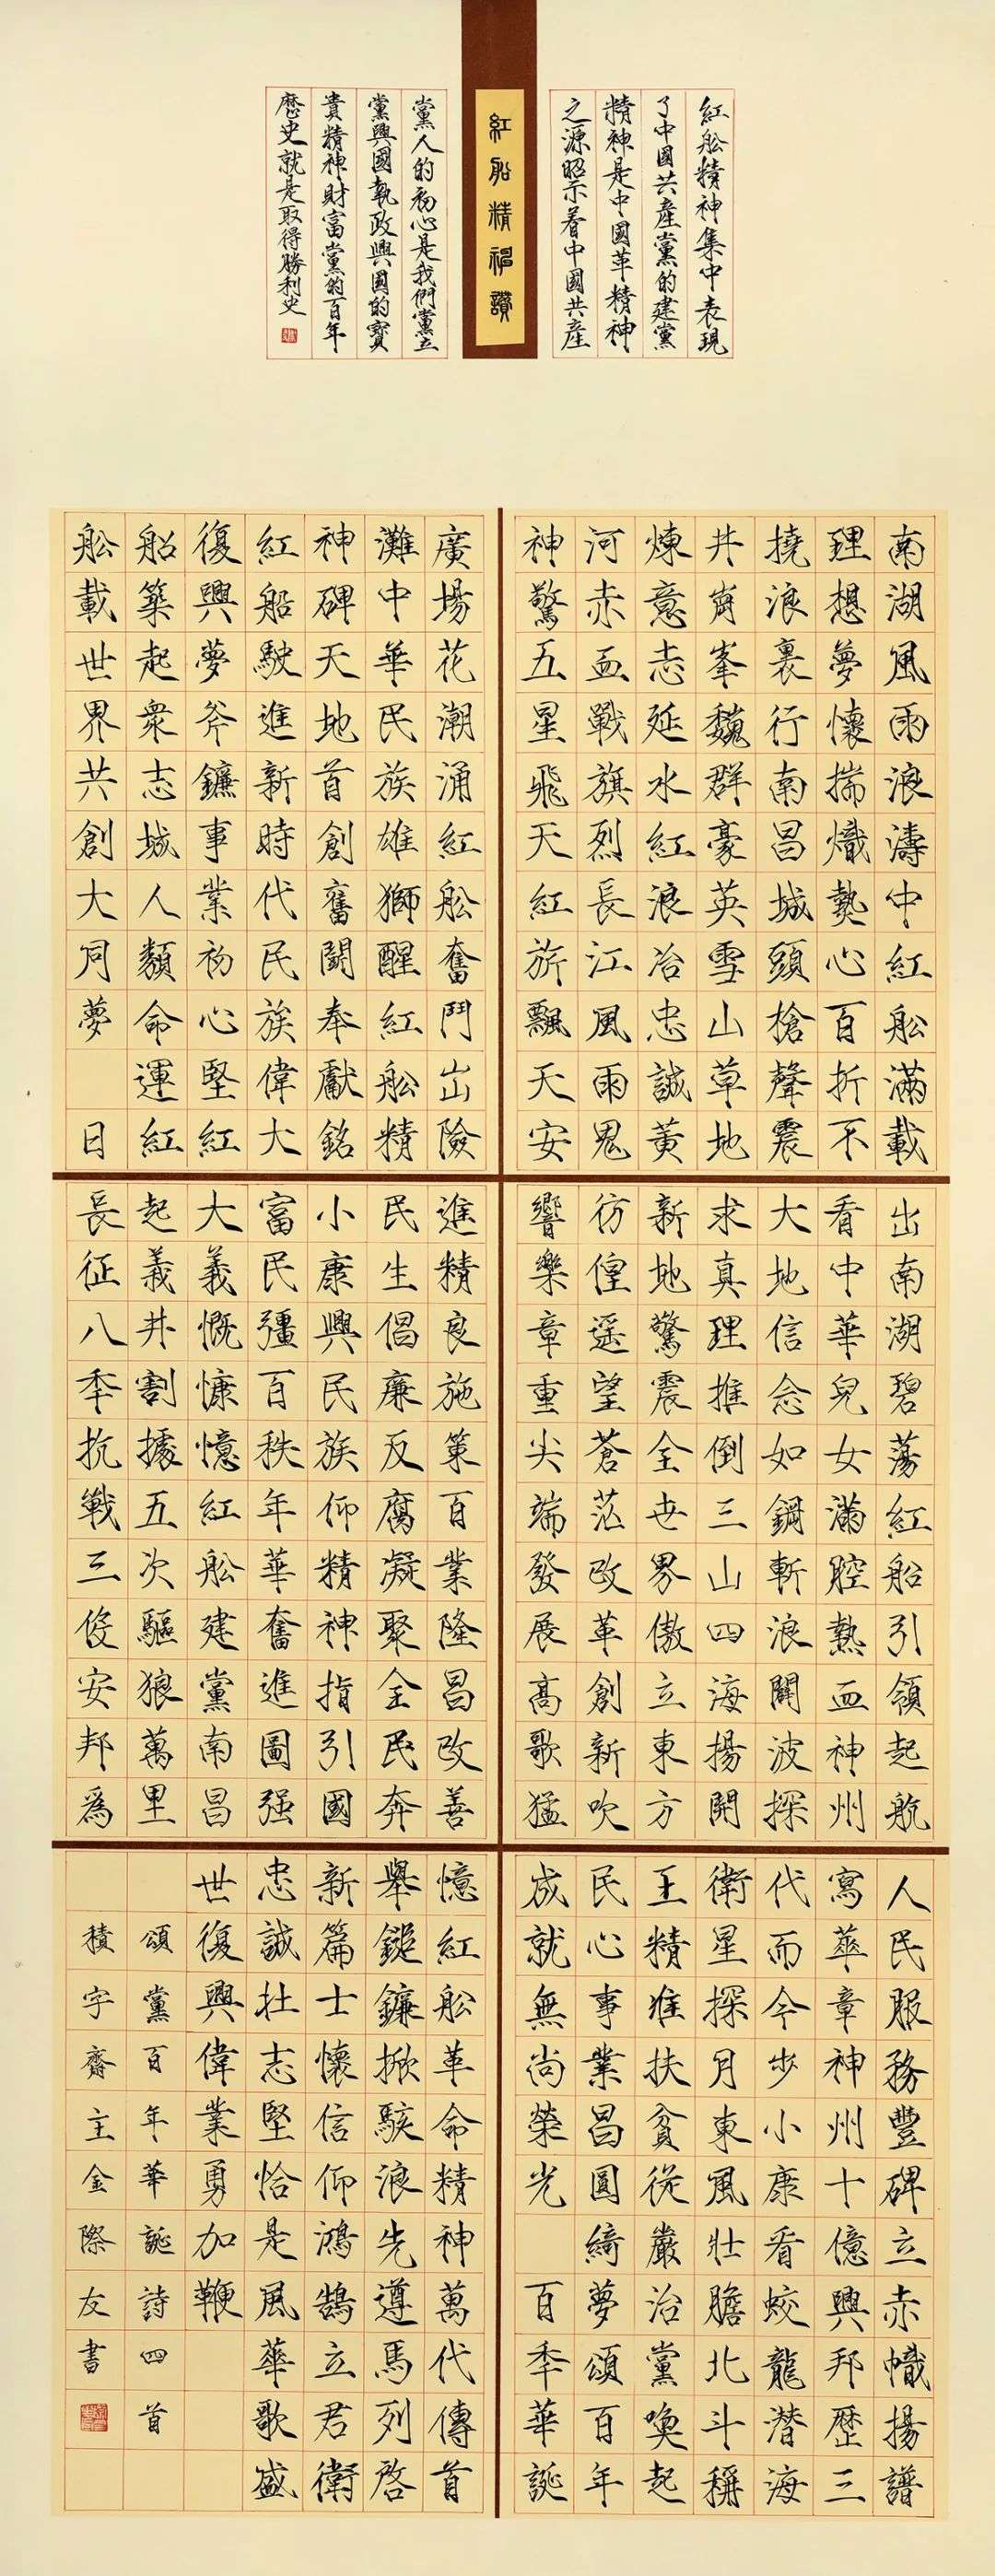 紅船精神集中表現
了中國共產黨的建黨
精神是中國革精神
之源昭示着中國共產
紅船精神讚
黨人的初心是我們黨立
黨興國執政興國的寶
貴精神財富黨的百年
歷史就是取得勝利史
南湖風雨浪濤中紅船滿載
理想夢懷揣熾熱心百折不
撓浪裏行南昌城頭槍聲震
井崗峯巍群豪英雪山草地
煉意志延水紅浪冶忠誠黃
河赤血戰旗烈長江風雨鬼
神驚五星飛天紅旂飄天安
廣場花潮涌紅船奮鬥出險
灘中華民族雄獅醒紅船精
神碑天地首創奮鬪奉獻銘
紅船駛進新時代民族偉大
復興夢斧鐮事業初心堅紅
船築起衆志城人類命運紅
船載世界共創大同夢 日
出南湖碧蕩紅船引領起航
看中華兒女滿腔熱血神州
大地信念如鋼斬浪闢波探
求真理推倒三山四海揚開
新地驚震全世界傲立東方
彷徨遥望蒼茫改革創新吹
響樂章重尖端發展高歌猛
進精良施策百業隆昌改善
民生倡廉反腐凝聚全民奔
小康興民族仰精神指引國
富民彊百秩年華奮進圖强
大義慨慷憶紅船建黨南昌
起義井割據五次驅狼萬里
長征八年抗戰三役安邦爲
人民服務豐碑立赤幟揚譜
寫華章神州十億興邦歷三
代而今步小康看蛟龍潜海
衛星探月東風壯膽北斗稱
王精准扶貧從嚴治黨喚起
民心事業昌圓綺夢頌百年
成就無尚榮光 百年華誕
憶紅船革命精神萬代傳首
舉鎚鐮掀駭浪先遵馬列啓
新篇士懷信仰鴻鵠立君衛
忠誠壯志堅恰是風華歌盛
世復興偉業勇加鞭
頌黨百年華誕詩四首
積字齋主金際友書